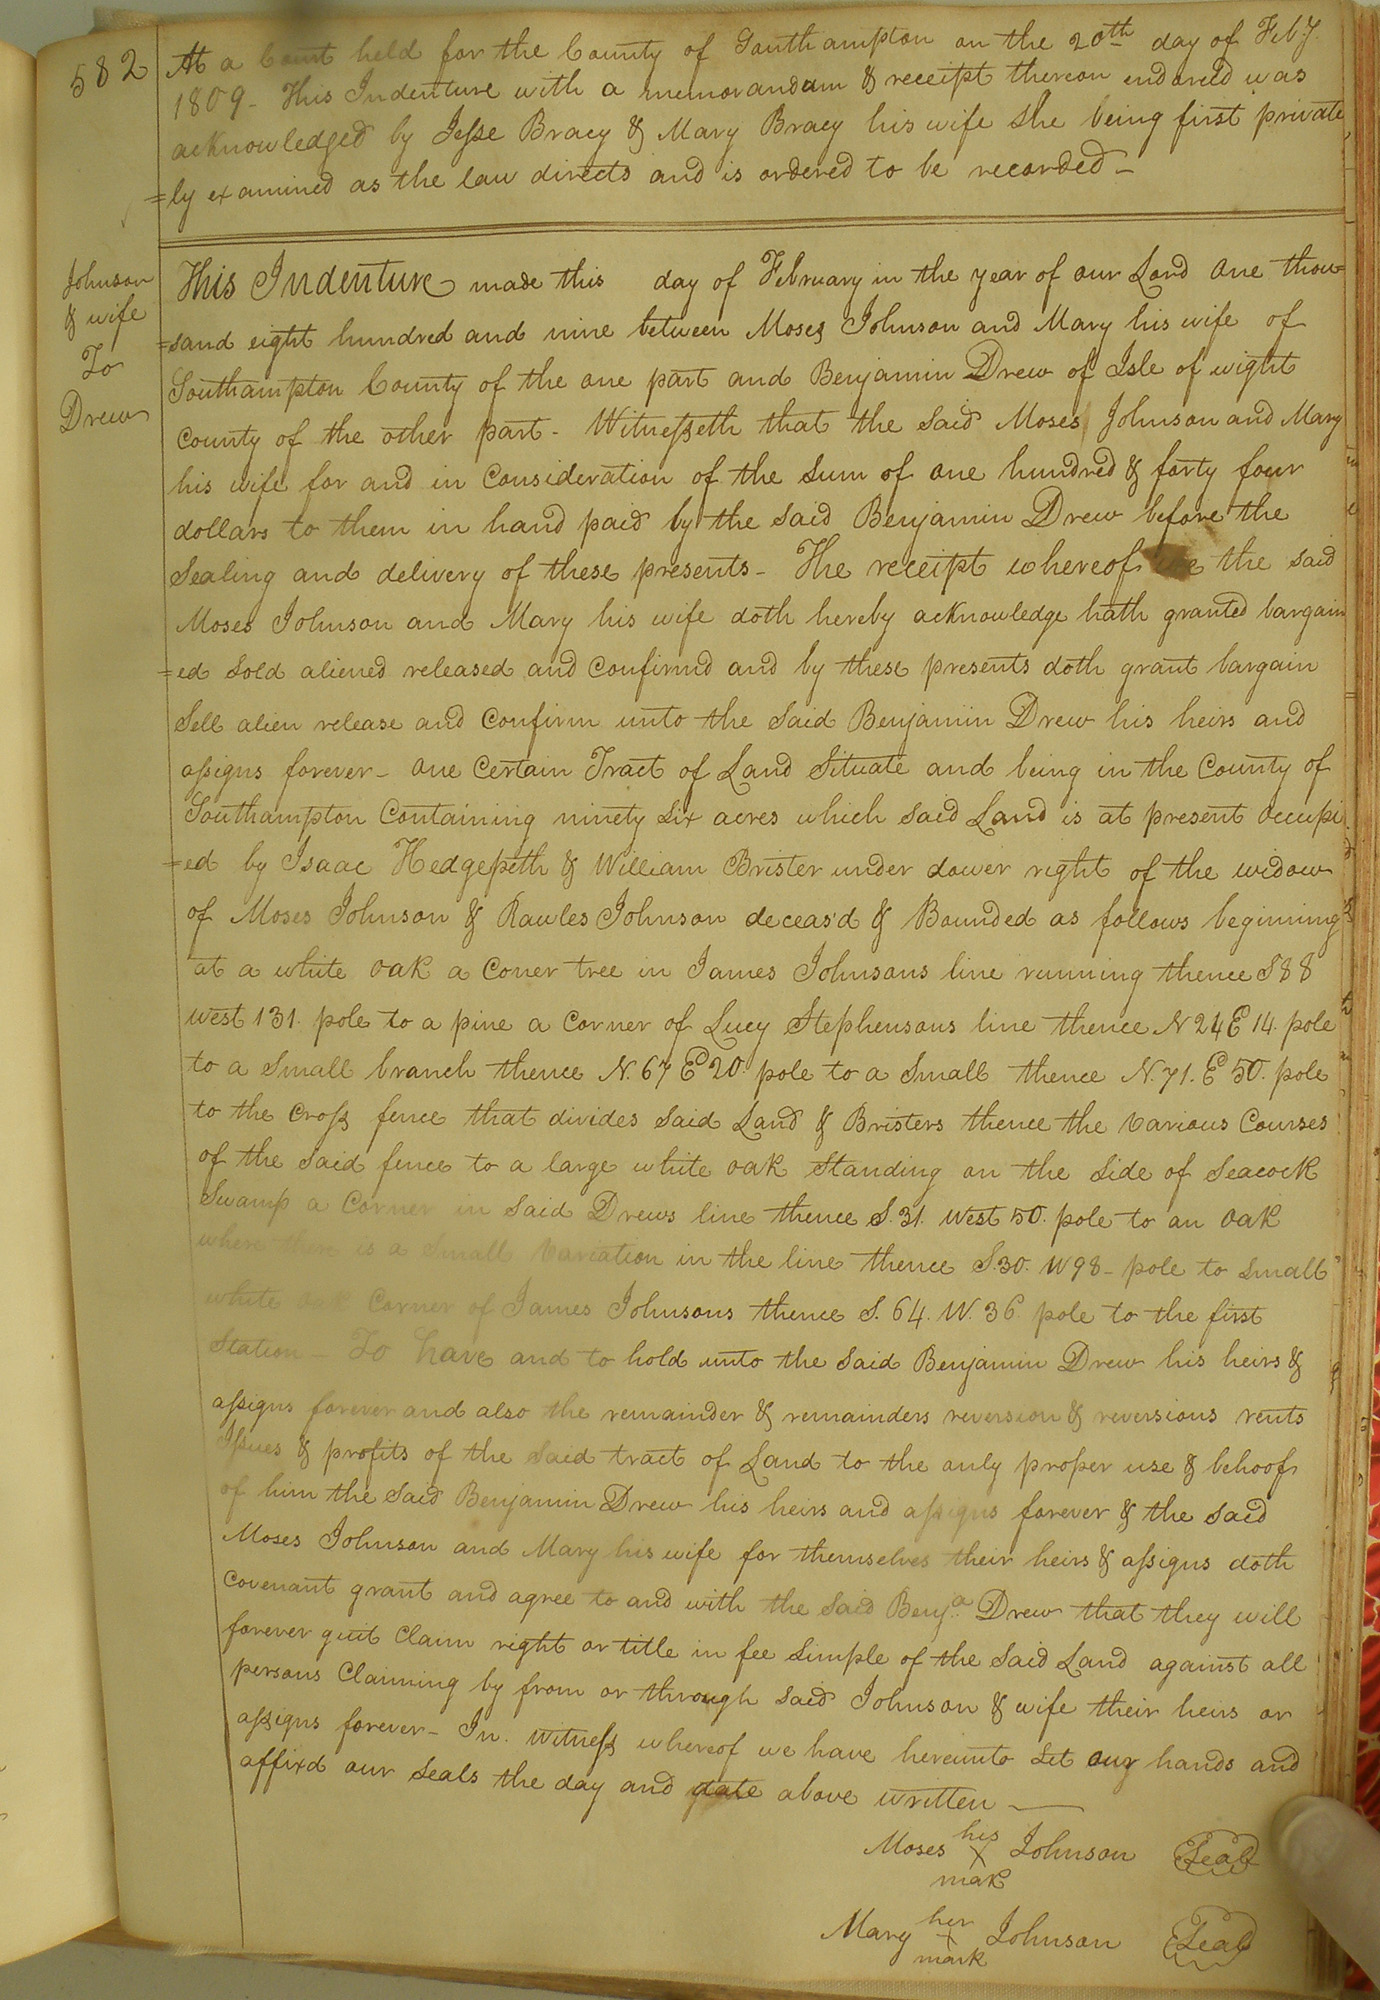 582
At a Court held for the County of Southampton on the 20th day of Feby.
1809 - This Indenture with a memorandum & receipt thereon endorced was
acknowledged by Jesse Bracy & Mary Bracy his wife she being first private
=ly examined as the law directs and is ordered to be recorded -
Johnson
& wife
To
Drew
This Indenture made this day of February in the year of our Lord One thou
=sand eight hundred and nine between Moses Johnson and Mary his wife of
Southampton County of the one part and Benjamin Drew of Isle of wight
County of the other part - Witnesseth that the said Moses Johnson and Mary
his wife for and in Consideration of the Sum of one hundred & forty four
dollars to them in hand paid by the said Benjamin Drew before the
Sealing and delivery of these presents - The receipt whereof the said
Moses Johnson and Mary his wife doth hereby acknowledge hath granted bargain
=ed Sold aliened released and Confirmd and by these presents doth grant bargain
Sell alien release and Confirm unto the said Benjamin Drew his heirs and
assigns forever - One Certain Tract of Land Situate and being in the County of
Southampton Containing ninety Six acres which said Land is at present Occupi
=ed by Isaac Hedgepeth & William Brister under dower right of the widow
of Moses Johnson & Rawles Johnson deceas'd & Bounded as follows begining
at a white oak a Coner tree in James Johnsons line running thence S 88
west 131. pole to a pine a Corner of Lucy Stephensons line thence N 24 E 14. pole
to a Small branch thence N. 67 E 20. pole to a Small thence N. 71. E 50. pole
to the Cross fence that divides said Land & Bristers thence the various Courses
of the said fence to a large white oak Standing on the Side of Seacock
Swamp a Corner in said Drews line thence S. 31. West 50. pole to an oak
where there is a Small variation in the line thence S. 30. W 98 - pole to Small
white oak Corner of James Johnsons thence S. 64. W. 36 pole to the first
Station - To have and to hold unto the said Benjamin Drew his heirs &
assigns forever and also the remainder & remainders reversion & reversions rents
Issues & profits of the said tract of Land to the only proper use & behoof
of him the said Benjamin Drew his heirs and assigns forever & the said
Moses Johnson and Mary his wife for themselves their heirs & assigns doth
Covenant grant and agree to and with the said Benja. Drew that they will
forever quit Claim right or title in fee Simple of the said Land against all
persons Claiming by from or through said Johnson & wife their heirs or
assigns forever - In. Witness whereof we have hereunto Set our hands and
affixd our Seals the day and date above written
Moses his X mark Johnson Seal
Mary her + mark Johnson Seal